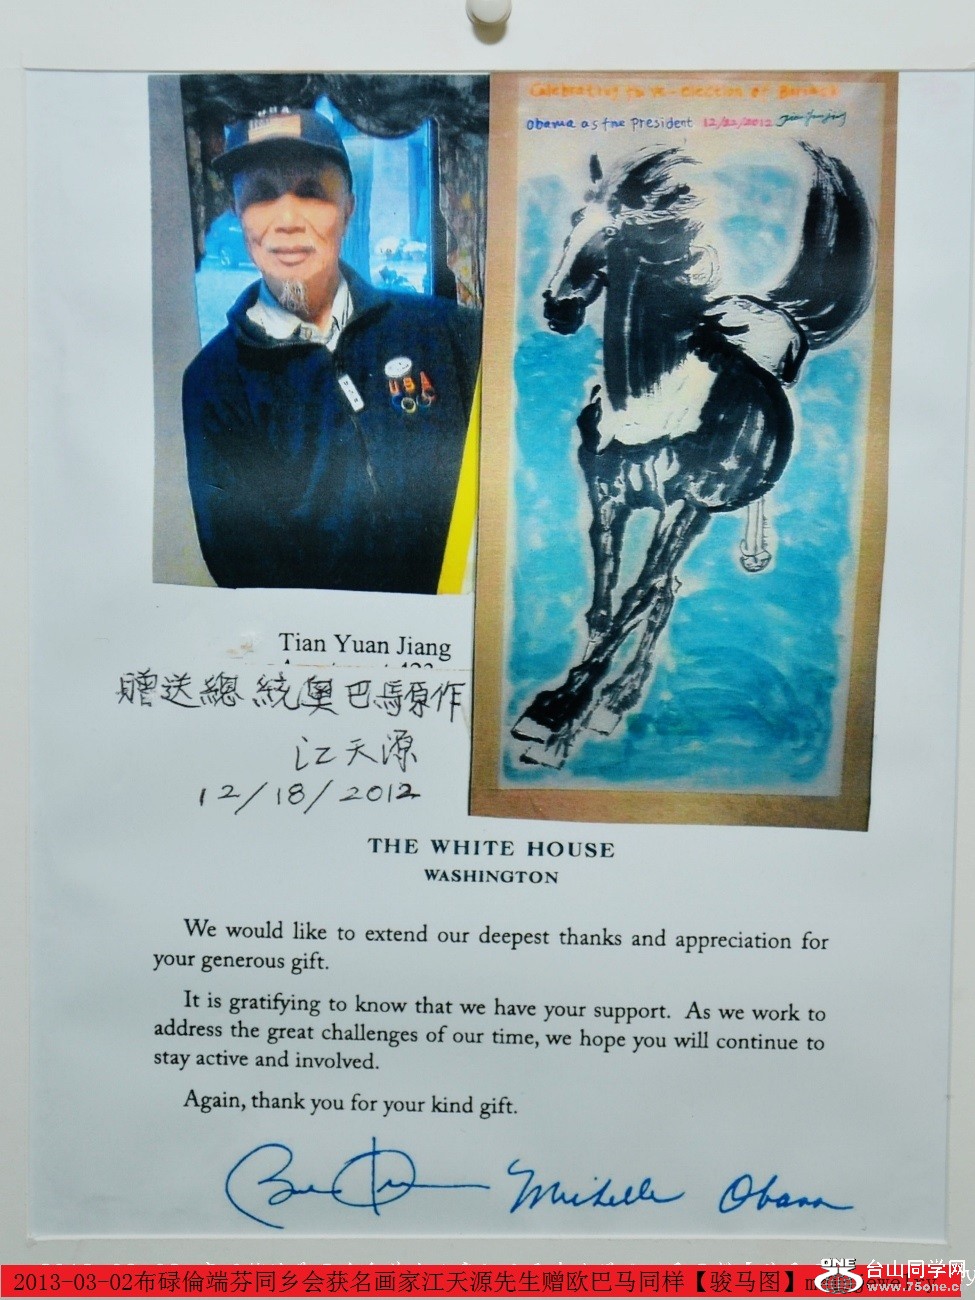 USA
Celebrating to re-election of Barack
Obama as the President 12/22/2012
USA
Tian Yuan Jiang
贈送總統奧巴馬原作
江天源
12/18/2012
THE WHITE HOUSE
WASHINGTON
We would like to extend our deepest thanks and appreciation for
your generous gift.
It is gratifying to know that we have your support. As we work to
address the great challenges of our time, we hope you will continue to
stay active and involved.
Again, thank you for your kind gift.
Michelle Obama
2013-03-02布碌倫端芬同乡会获名画家江天源先生赠欧巴马同样【骏马图】
ONE
台山同学网
www.75one.cn